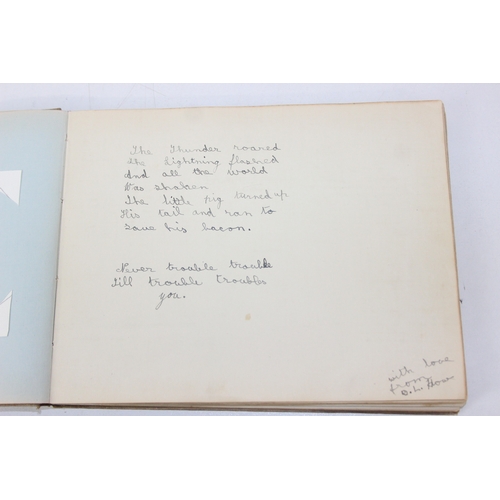 The Thunder roared
the lightning flashed
And all the world
Was shaken
The little pig turned up
His tail and ran to
save his bacon.
Never trouble trouble
Till trouble troubles
you.
with love
from